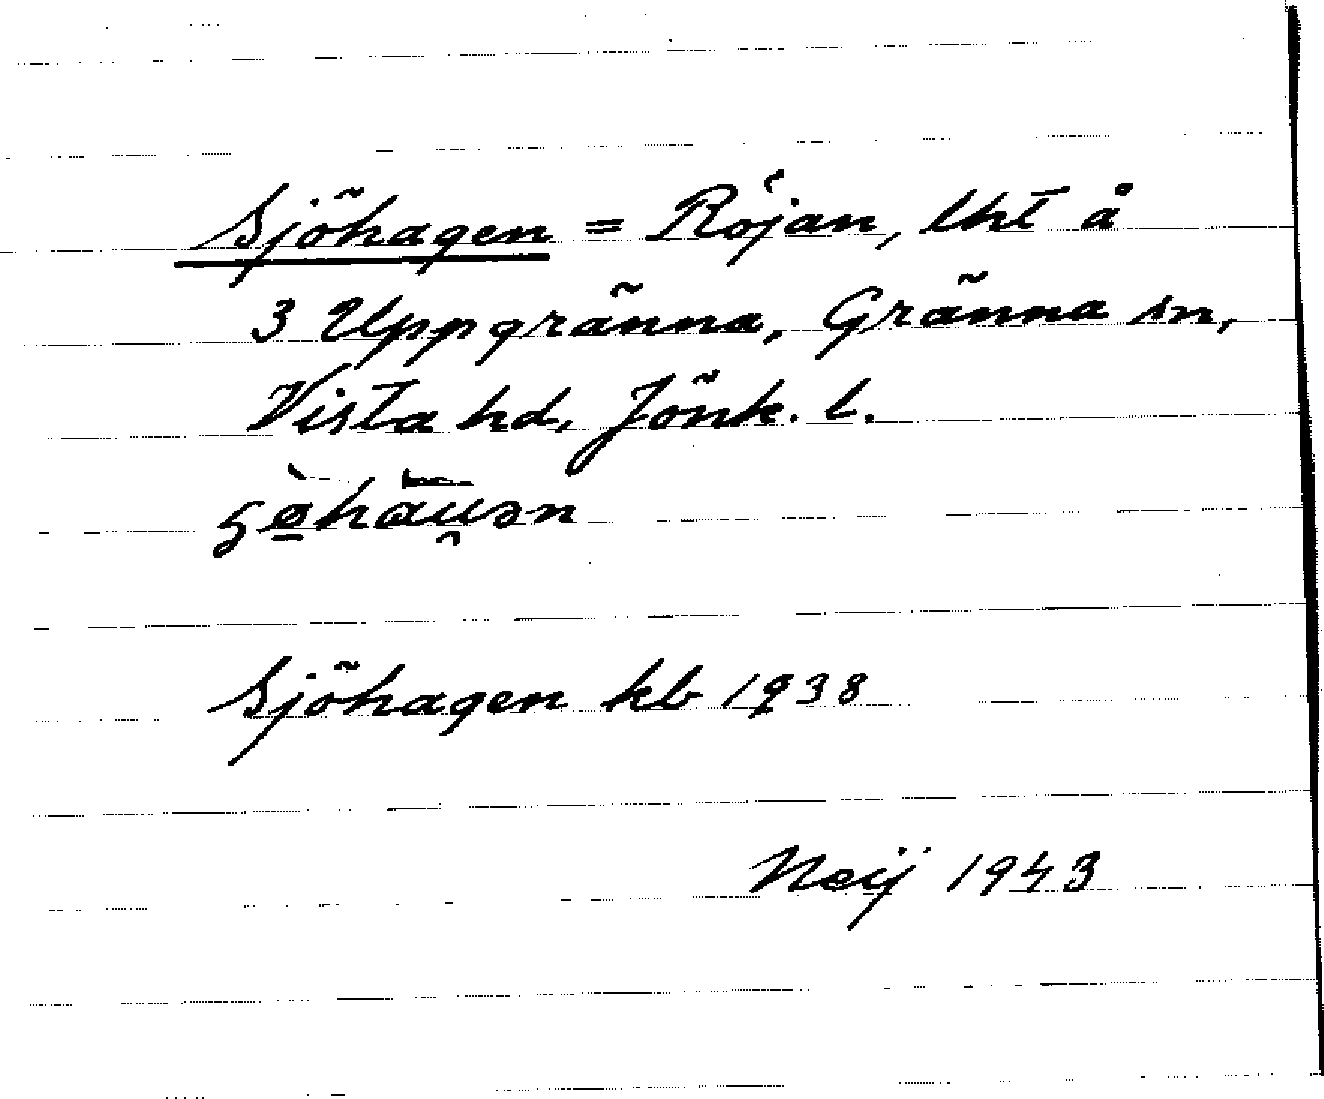 Sjöhagen = Röjan, lht å
3 Uppgränna, Gränna sn,
Vista hd, Jönk. l.
Sjöhagen kb 1938
Neij 1943